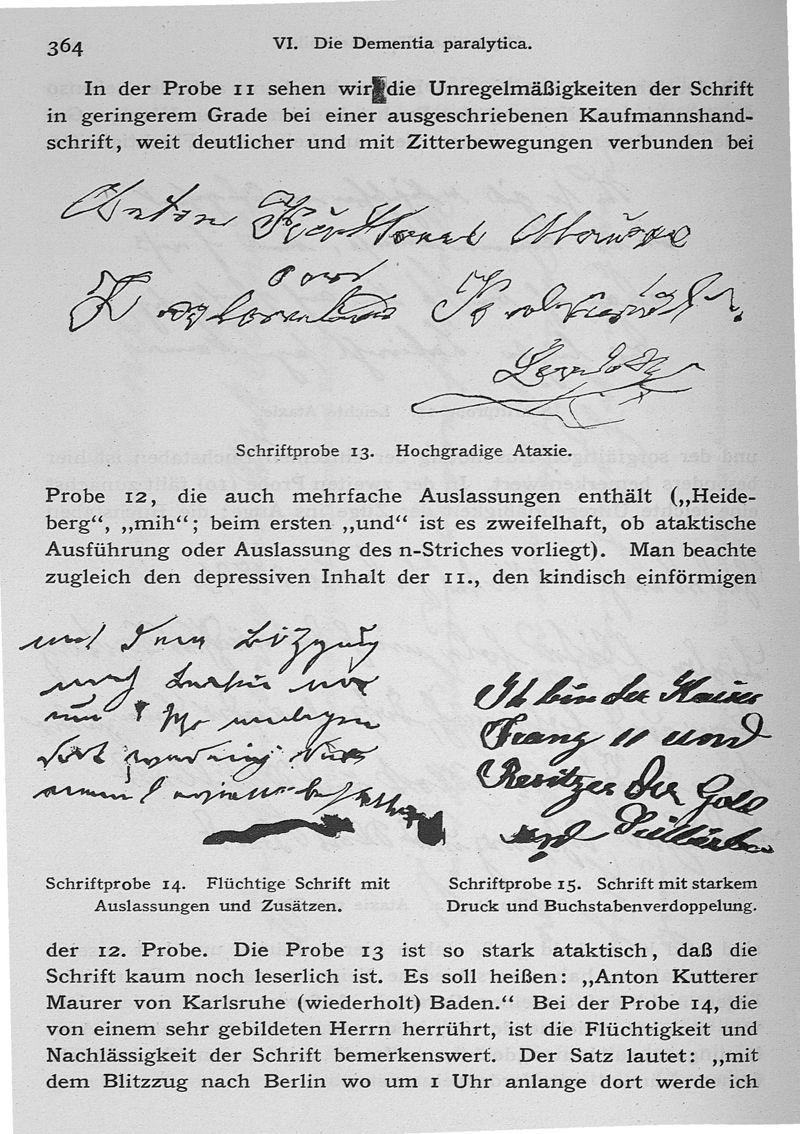 364
VI. Die Dementia paralytica.
In der Probe 11 sehen wir die Unregelmäßigkeiten der Schrift
in geringerem Grade bei einer ausgeschriebenen Kaufmannshand-
schrift, weit deutlicher und mit Zitterbewegungen verbunden bei
Anton
Schriftprobe 13. Hochgradige Ataxie.
Probe 12, die auch mehrfache Auslassungen enthält („Heide-
berg“, „mih“; beim ersten „und“ ist es zweifelhaft, ob ataktische
Ausführung oder Auslassung des n-Striches vorliegt). Man beachte
zugleich den depressiven Inhalt der 11., den kindisch einförmigen
Ich bin der Kaiser
Franz II und
Besitzer der Gold
und
Schriftprobe 14. Flüchtige Schrift mit
Auslassungen und Zusätzen.
Schriftprobe 15. Schrift mit starkem
Druck und Buchstabenverdoppelung.
der 12. Probe. Die Probe 13 ist so stark ataktisch, daß die
Schrift kaum noch leserlich ist. Es soll heißen: „Anton Kutterer
Maurer von Karlsruhe (wiederholt) Baden.“ Bei der Probe 14, die
von einem sehr gebildeten Herrn herrührt, ist die Flüchtigkeit und
Nachlässigkeit der Schrift bemerkenswert. Der Satz lautet: „mit
dem Blitzzug nach Berlin wo um 1 Uhr anlange dort werde ich